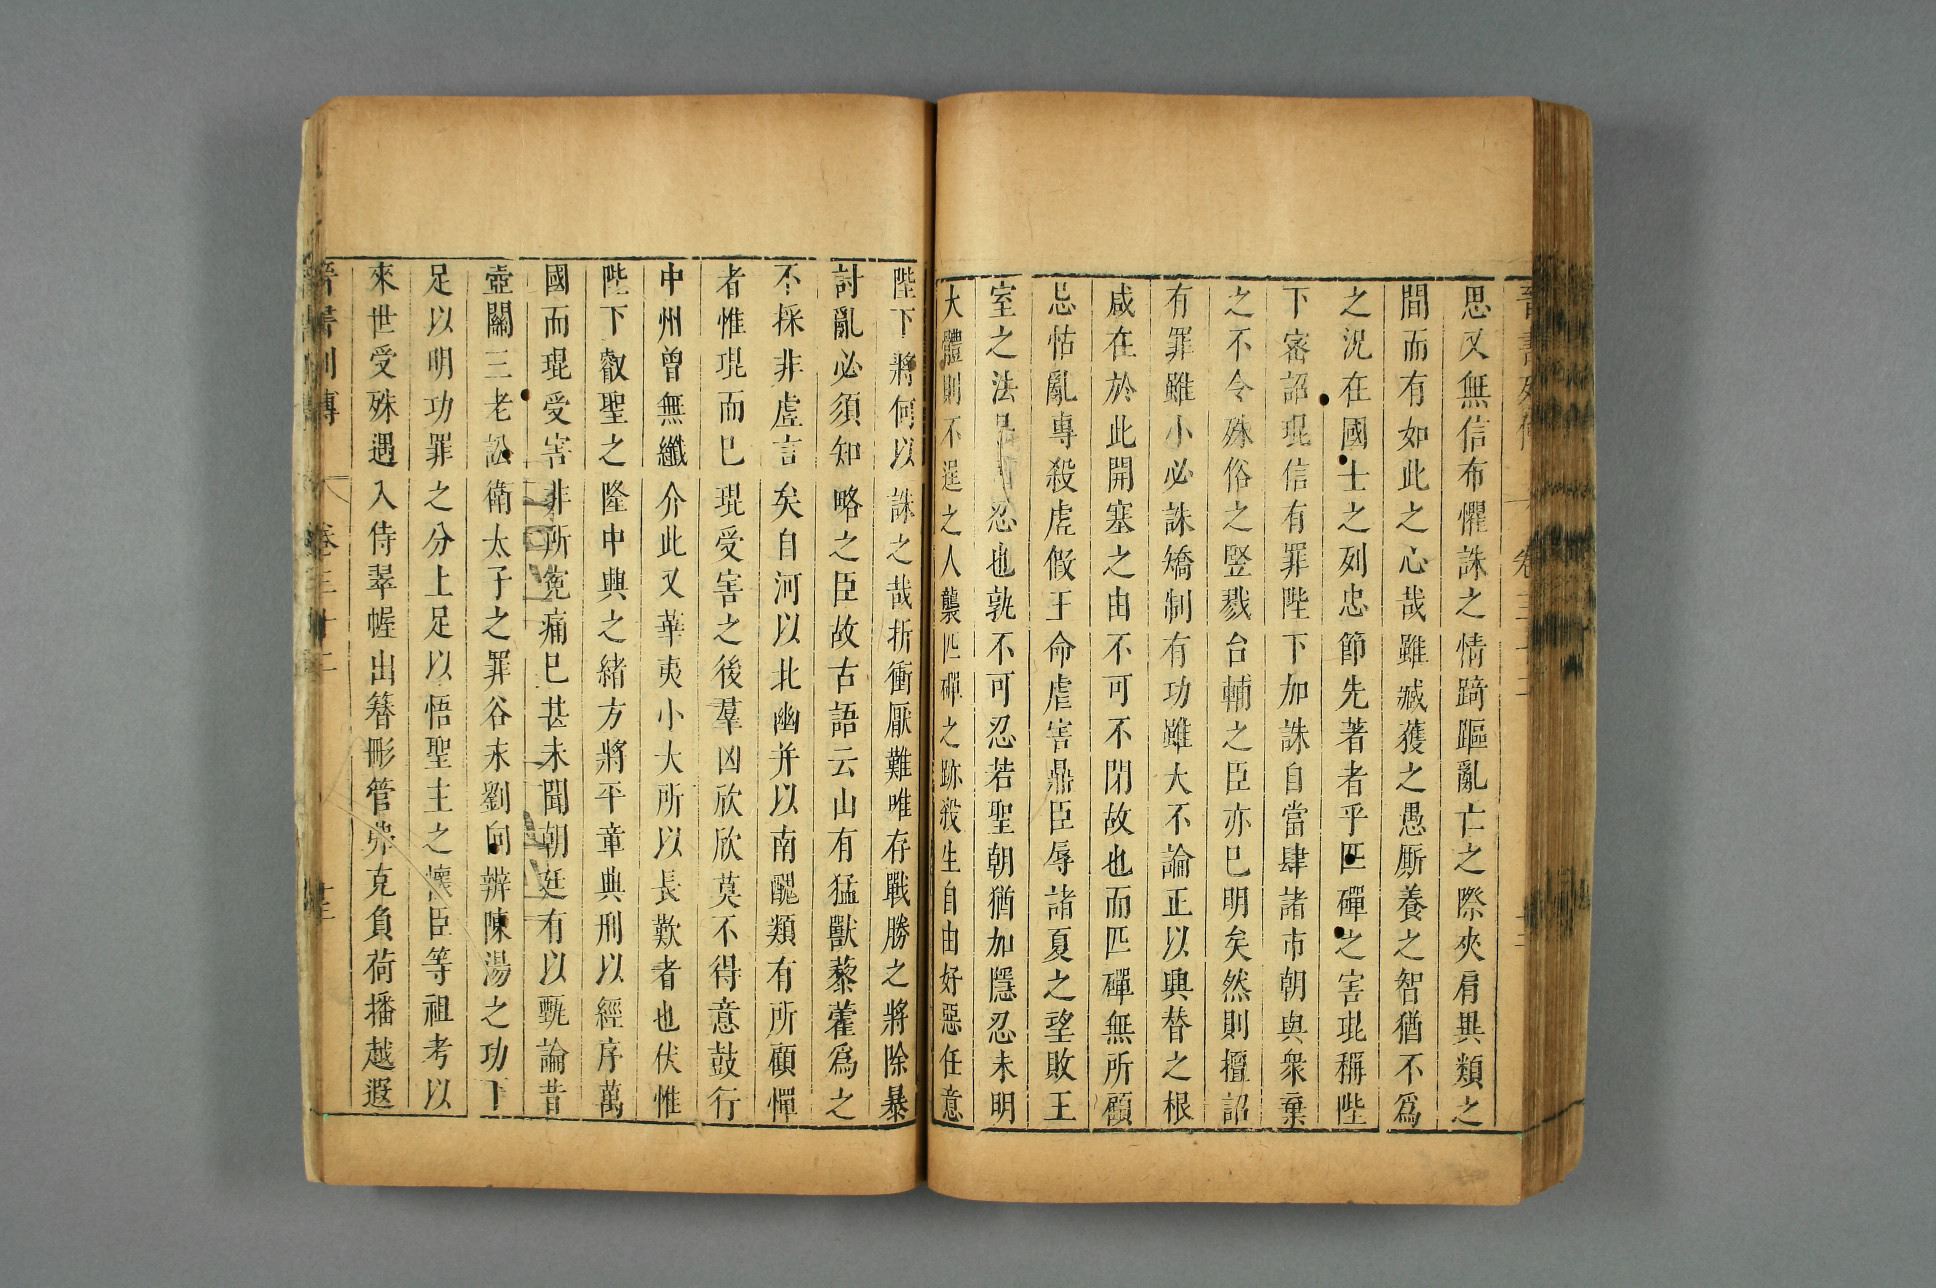 晉書列傳 卷三十二
思又無信布懼誅之情踦䠓亂亡之際夾肩異類之
間而有如此之心哉雖臧獲之愚厮養之智猶不爲
之況在國士之列忠節先著者乎匹磾之害琨稱陛
下密詔琨信有罪陛下加誅自當肆諸市朝與衆棄
之不令殊俗之豎戮台輔之臣亦已明矣然則擅詔
有罪雖小必誅矯制有功雖大不論正以興替之根
咸在於此開塞之由不可不閉故也而匹磾無所顧
忌怙亂專殺虛假王命虐害鼎臣辱諸夏之望敗王
室之法是可忍也孰不可忍若聖朝猶加隱忍未明
大體則不逞之人襲匹磾之跡殺生自由好惡任意
陛下將何以誅之哉折衝厭難唯存戰勝之將除暴
討亂必須知略之臣故古語云山有猛獸藜藿爲之
不採非虛言矣自河以北幽并以南醜類有所顧憚
者惟琨而巳琨受害之後羣凶欣欣莫不得意鼓行
中州曾無纖介此又華夷小大所以長歎者也伏惟
陛下叡聖之隆中興之緒方將平章典刑以經序萬
國而琨受害非所寃痛巳甚未聞朝廷有以甄論昔
壺關三老訟衛太子之罪谷永劉向辨陳湯之功下
足以明功罪之分上足以悟聖主之懷臣等祖考以
來世受殊遇入侍翠幄出簪彤管弗克負荷播越遐
晉書列傳 卷三十二 十三